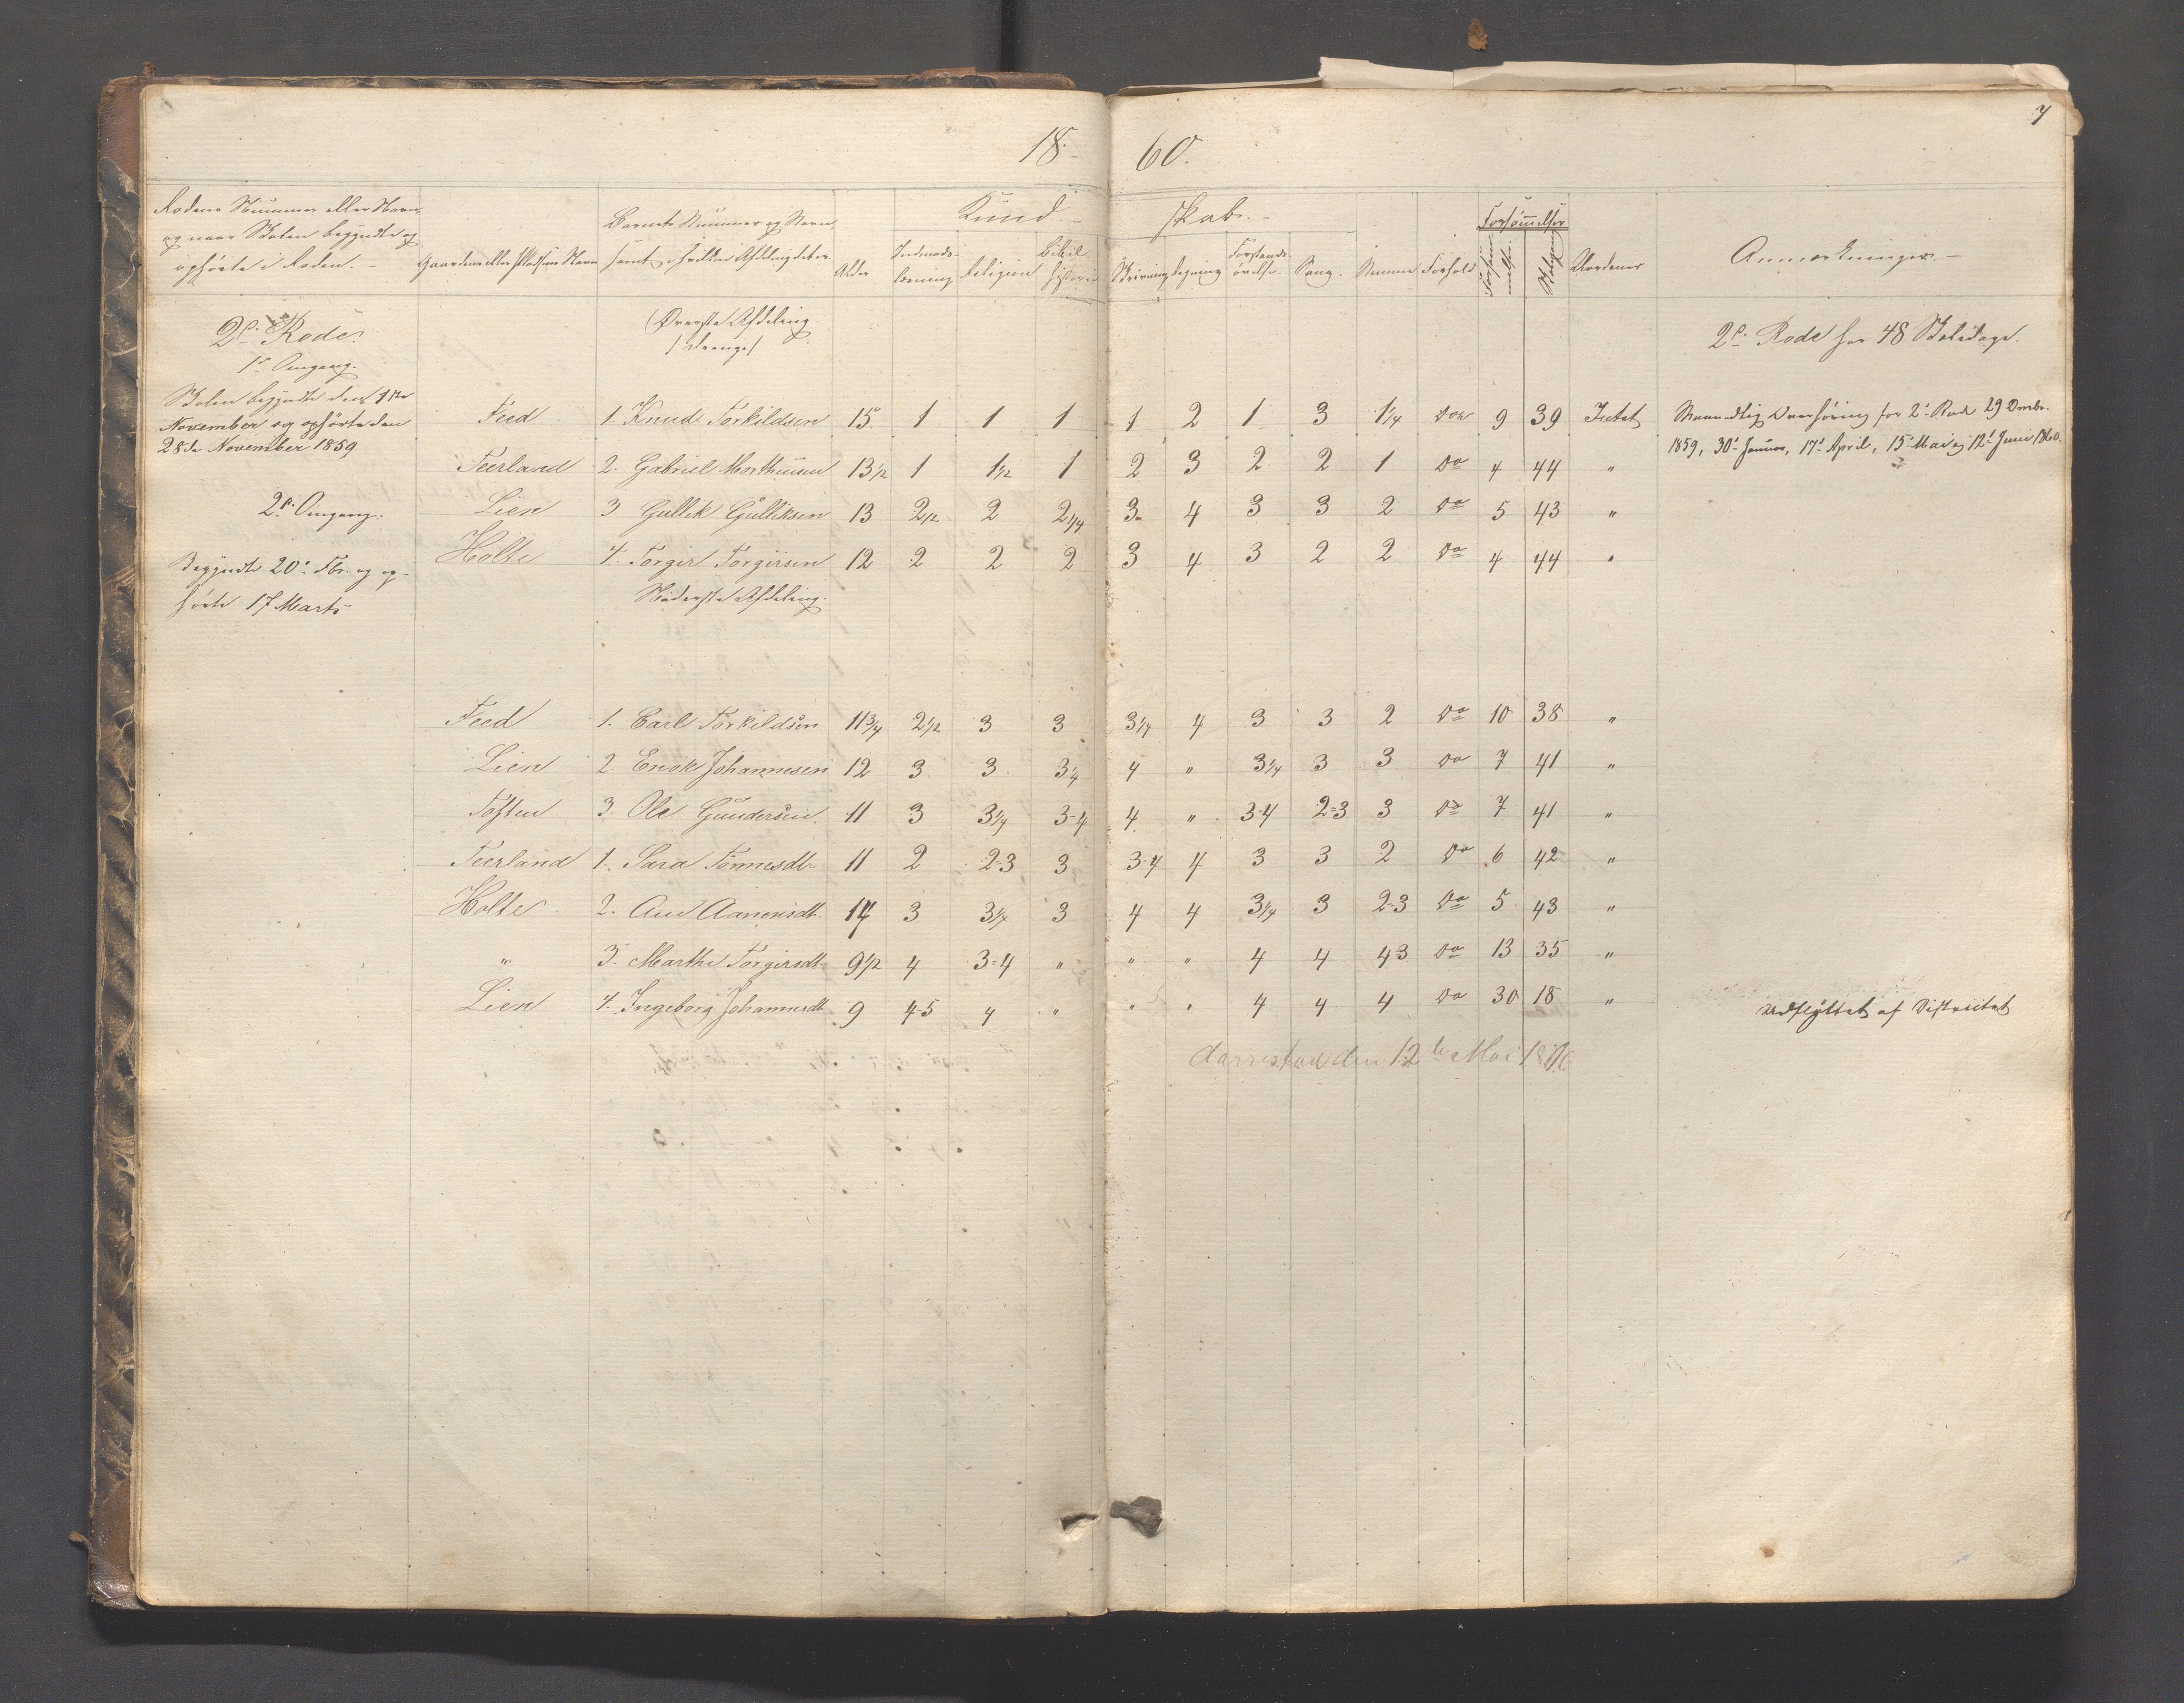 7
18 60.
Rodens Nummer eller Navn,
og naar Skolen begyndte og
ophørte i Roden.
Gaardens eller Pladsens Navn
Barnets Nummer og Navn,
samt i hvilken Afdeling det er
Alder
Kund- skab.
Indenads- læsning
Religion
Bibel- historie
Skrivning
Regning
Forstands- øvelse
Sang.
Summa
Forhold
Forsømmelser
Uordener
Anmærkninger.
2den Rode.
1ste Omgang.
Skolen begyndte den 1ste
November og ophørte den
28de November 1859
2den Omgang.
Begyndte 20de Fbr. og op-
hørte 17 Marts
Øverste Afdeling
/Drenge/
2den Rode har 48 Skoledage.
Feed 1. Knud Torkildsen 15 1 1 1 1 2 1 3 1 1/4 9 39 Intet Maanedlig Overhøring for 2den Rode 29 Dmbr.
1859, 30te Januar, 17de April, 15de Mai og 12te Juni 1860.
Feerland 2. Gabriel Morthensen 13 1/2 1 1 1/2 1 2 3 2 2 1 Do 4 44 "
Lien 3 Gullik Gulliksen 13 2 1/2 2 2 1/4 3 4 3 3 2 Do 5 43 "
Holte 4. Torger Torgersen 12 2 2 2 3 4 3 2 2 Do 4 44 "
Nederste Afdeling.
Feed 1. Carl Torkildsen 11 3/4 2 1/2 3 3 3 1/4 4 3 3 2 Do 10 38 "
Lien 2. Enok Johannesen 12 3 3 3 1/4 4 " 3 1/4 3 3 Do 7 41 "
Toften 3. Ole Gundersen 11 3 3 1/4 3-4 4 " 3-4 2-3 3 Do 7 41 "
Feerland 1. Sara Tønnesdtr 11 2 2-3 3 3-4 4 3 3 2 Do 6 42 "
Holte 2. Ane Aanensdt 14 3 3 1/4 3 4 4 3 1/4 3 2-3 Do 5 43 "
" 3. Marthe Torgersdt 9 1/2 4 3-4 " " " 4 4 4-3 Do 13 35 "
Lien 4. Ingeborg Johannesdt 9 4-5 4 " " " 4 4 4 Do 30 18 " udflyttet af Distriktet
den 12te Mai